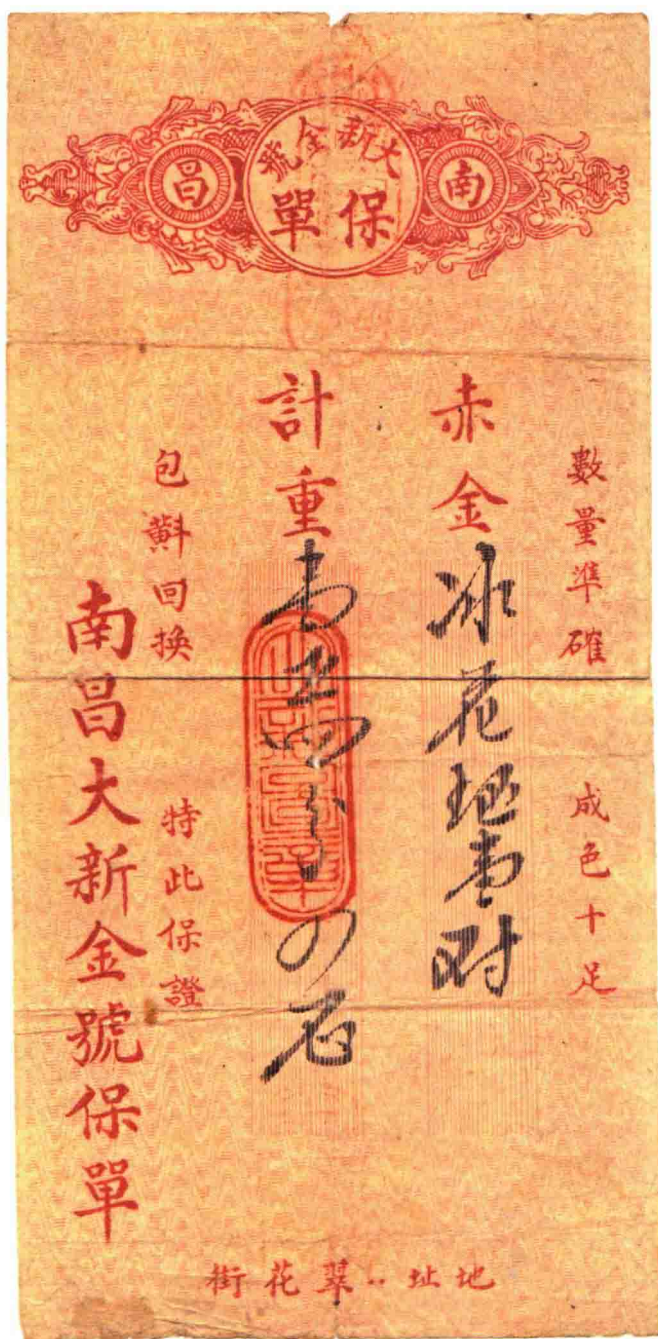 大新金號
南 保單 昌
數量準確 成色十足
赤金 冰花 壹对
計重 四分
包斢回換 特此保證
南昌大新金號保單
地址：翠花街